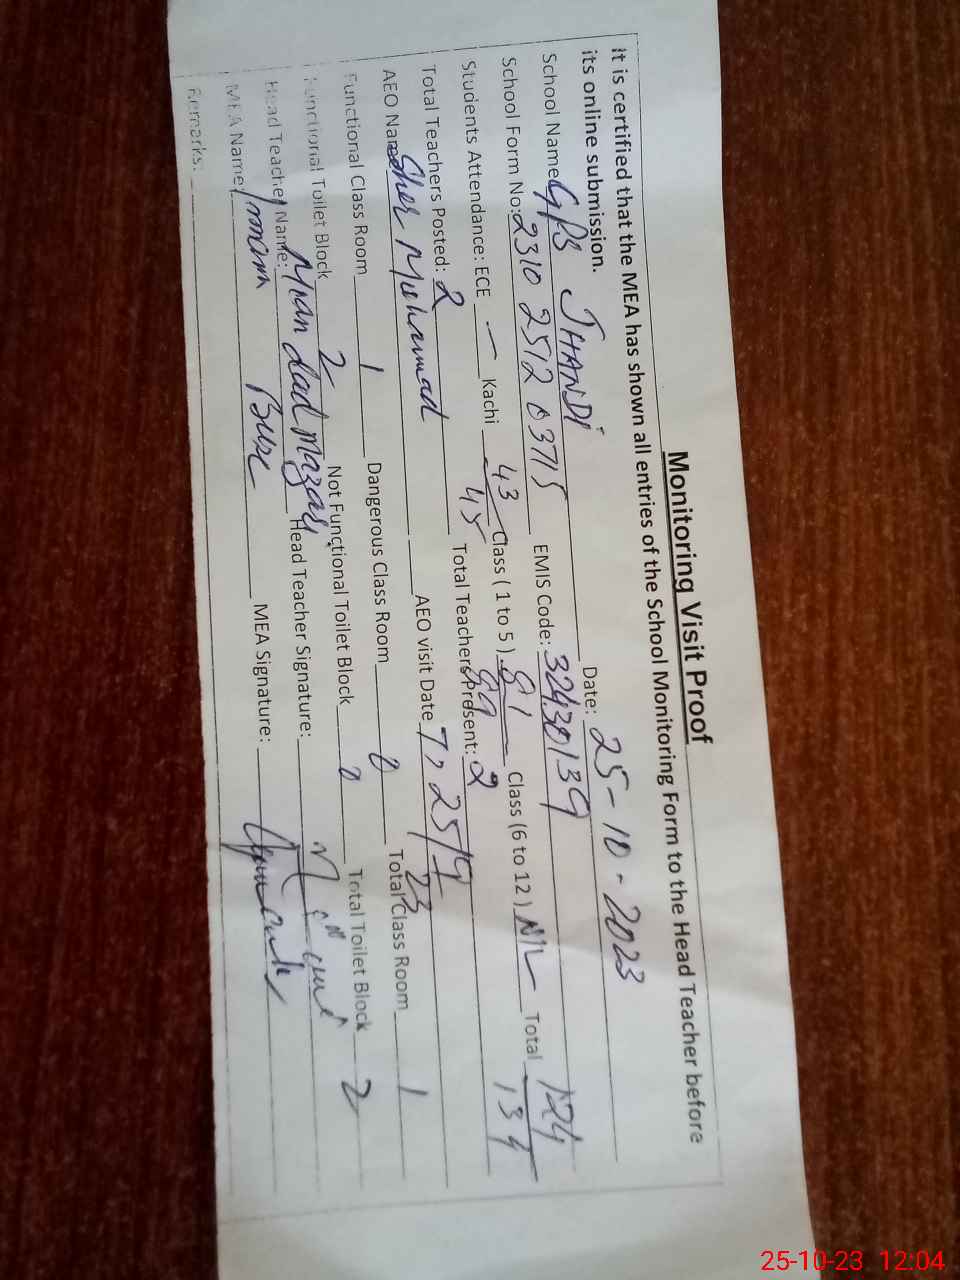 Monitoring Visit Proof
It is certified that the MEA has shown all entries of the School Monitoring Form to the Head Teacher before
its online submission. Date: 25-10-2023
School Name GPS JHANDI
School Form No: 2310 2512 03715 EMIS Code: 32430139
Students Attendance: ECE — Kachi 43/45 Class ( 1 to 5 ) 81/89 Class (6 to 12 ) NIL Total 124/134
Total Teachers Posted: 2 Total Teachers Present: 2
AEO Name Sher Muhammad AEO visit Date
Functional Class Room 1 Dangerous Class Room 0 Total Class Room 1
Functional Toilet Block 2 Not Functional Toilet Block 0 Total Toilet Block 2
Head Teacher Name: Mian dad Mazari Head Teacher Signature:
MEA Name: Imam Bux MEA Signature:
Remarks:
25-10-23 12:04